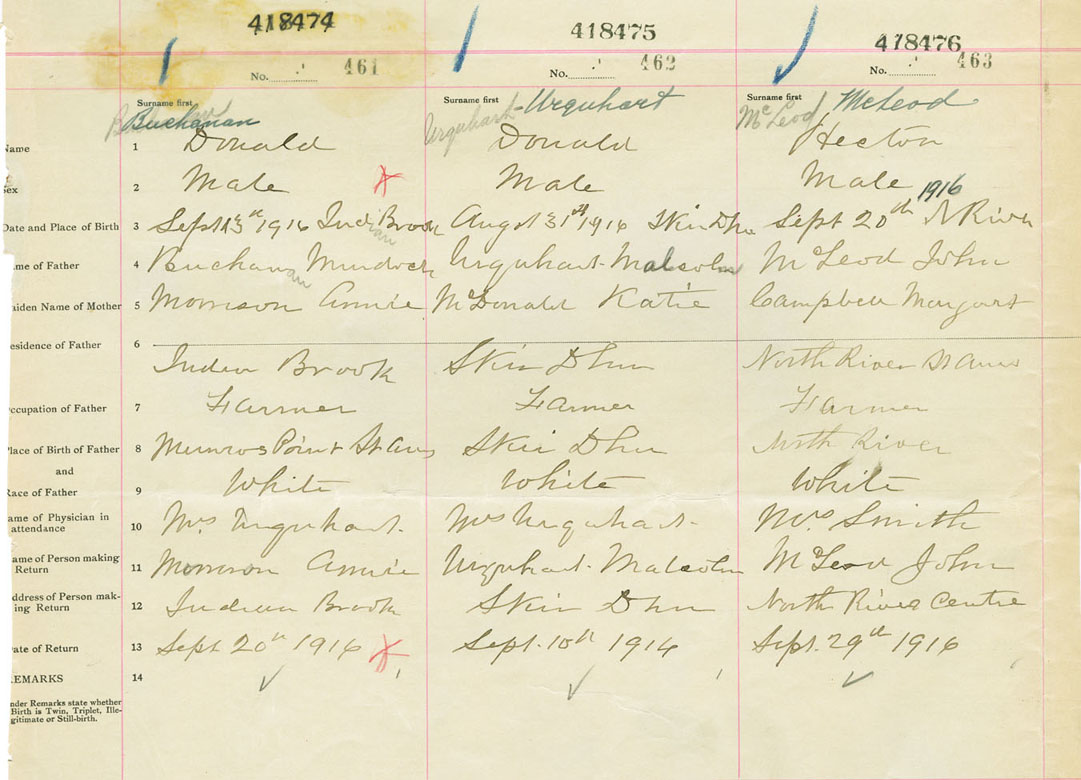 418474 418475 418476
No. 461 No. 462 No. 463
Surname first Surname first Surname first
Buchanan Urquhart Urquhart McLeod McLeod
Name 1 Donald Donald Hector
Sex 2 Male Male Male 1916
Date and Place of Birth 3 Sept 13th 1916 Indian Brook Augst 31st 1916 Skir Dhu Sept 20th N River
ame of Father 4 Buchanan Murdoch Urquhart Malcolm McLeod John
aiden Name of Mother 5 Morrison Annie McDonald Katie Campbell Margart
esidence of Father 6 Indian Brook Skir Dhu North River St Anns
ccupation of Father 7 Farmer Farmer Farmer
Place of Birth of Father 8 Munros Point St Anns Skir Dhu North River
and
Race of Father 9 White White White
ame of Physician in attendance 10 Mrs Urquhart. Mrs Urquhart. Mrs Smith
ame of Person making Return 11 Morrison Annie Urquhart Malcolm McLeod John
ddress of Person mak- ing Return 12 Indian Brook Skir Dhu North River Centre
ate of Return 13 Sept 20th 1916 Sept. 10th 1916 Sept. 29th 1916
REMARKS 14
nder Remarks state whether
Birth is Twin, Triplet, Ille-
gitimate or Still-birth.